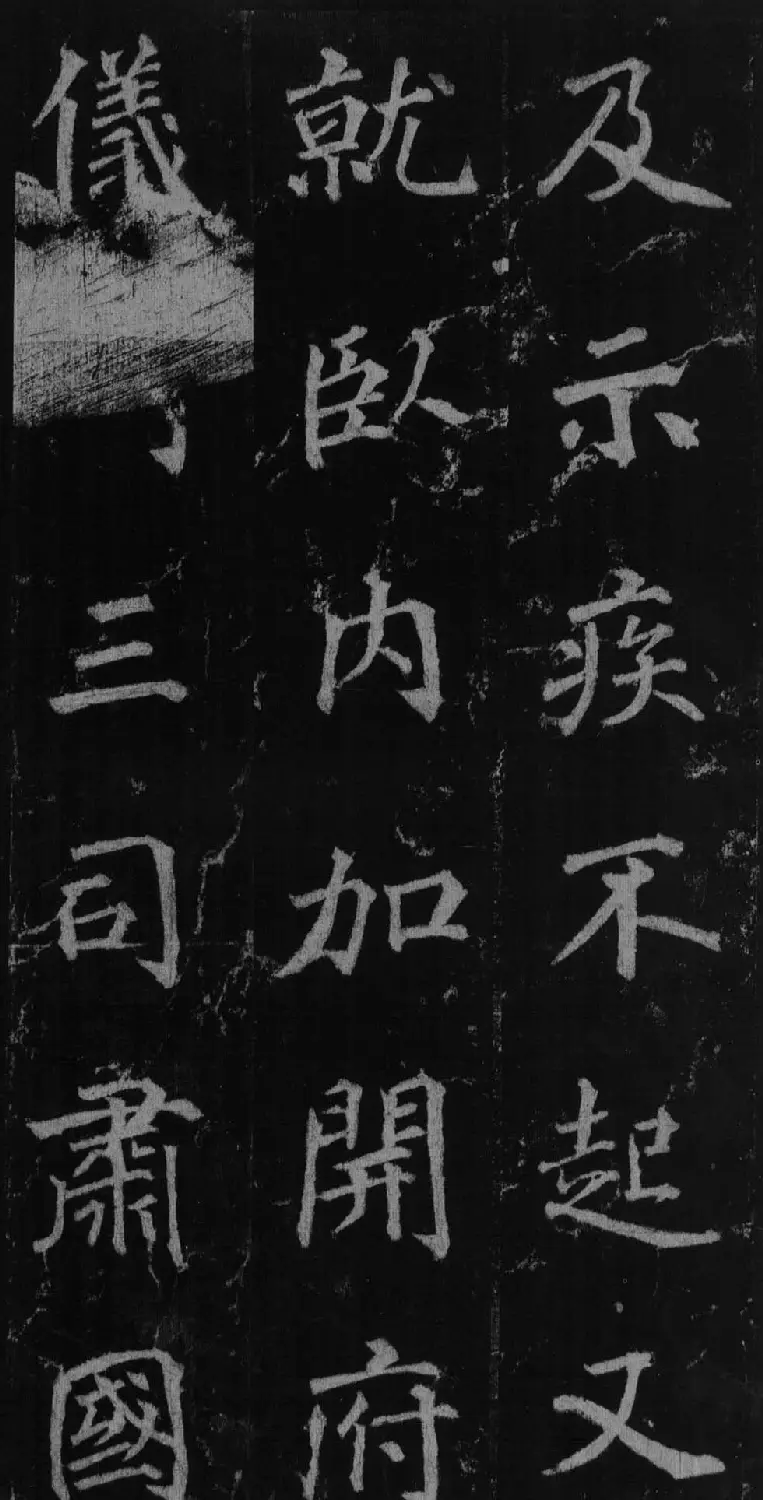 及示疾不起又
就臥內加開府
儀三司肅國